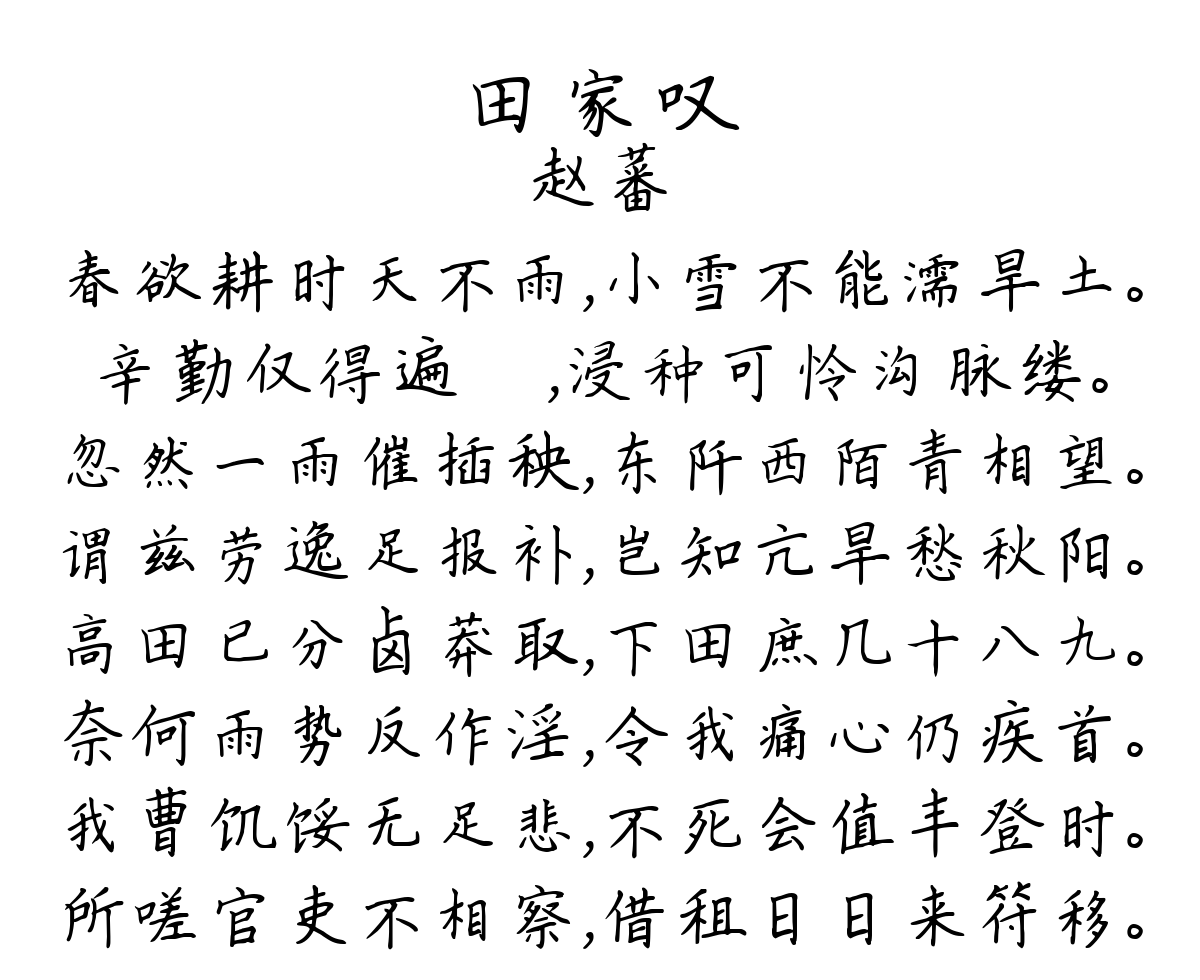 田家叹
赵蕃
春欲耕时天不雨,小雪不能濡旱土。
辛勤仅得遍 ,浸种可怜沟脉缕。
忽然一雨催插秧,东阡西陌青相望。
谓兹劳逸足报补,岂知亢旱愁秋阳。
高田已分卤莽取,下田庶几十八九。
奈何雨势反作淫,令我痛心仍疾首。
我曹饥馁无足悲,不死会值丰登时。
所嗟官吏不相察,借租日日来符移。